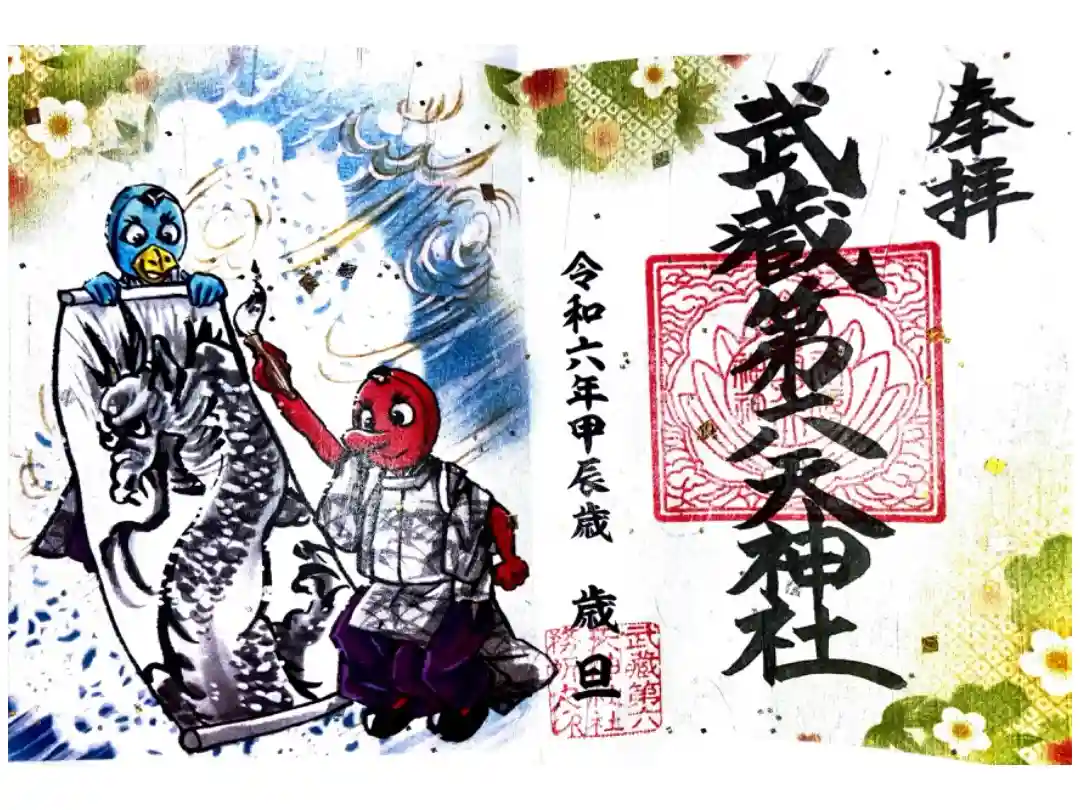 奉拝
武蔵第六天神社
令和六年甲辰歳 歳旦
武蔵第六
天神社